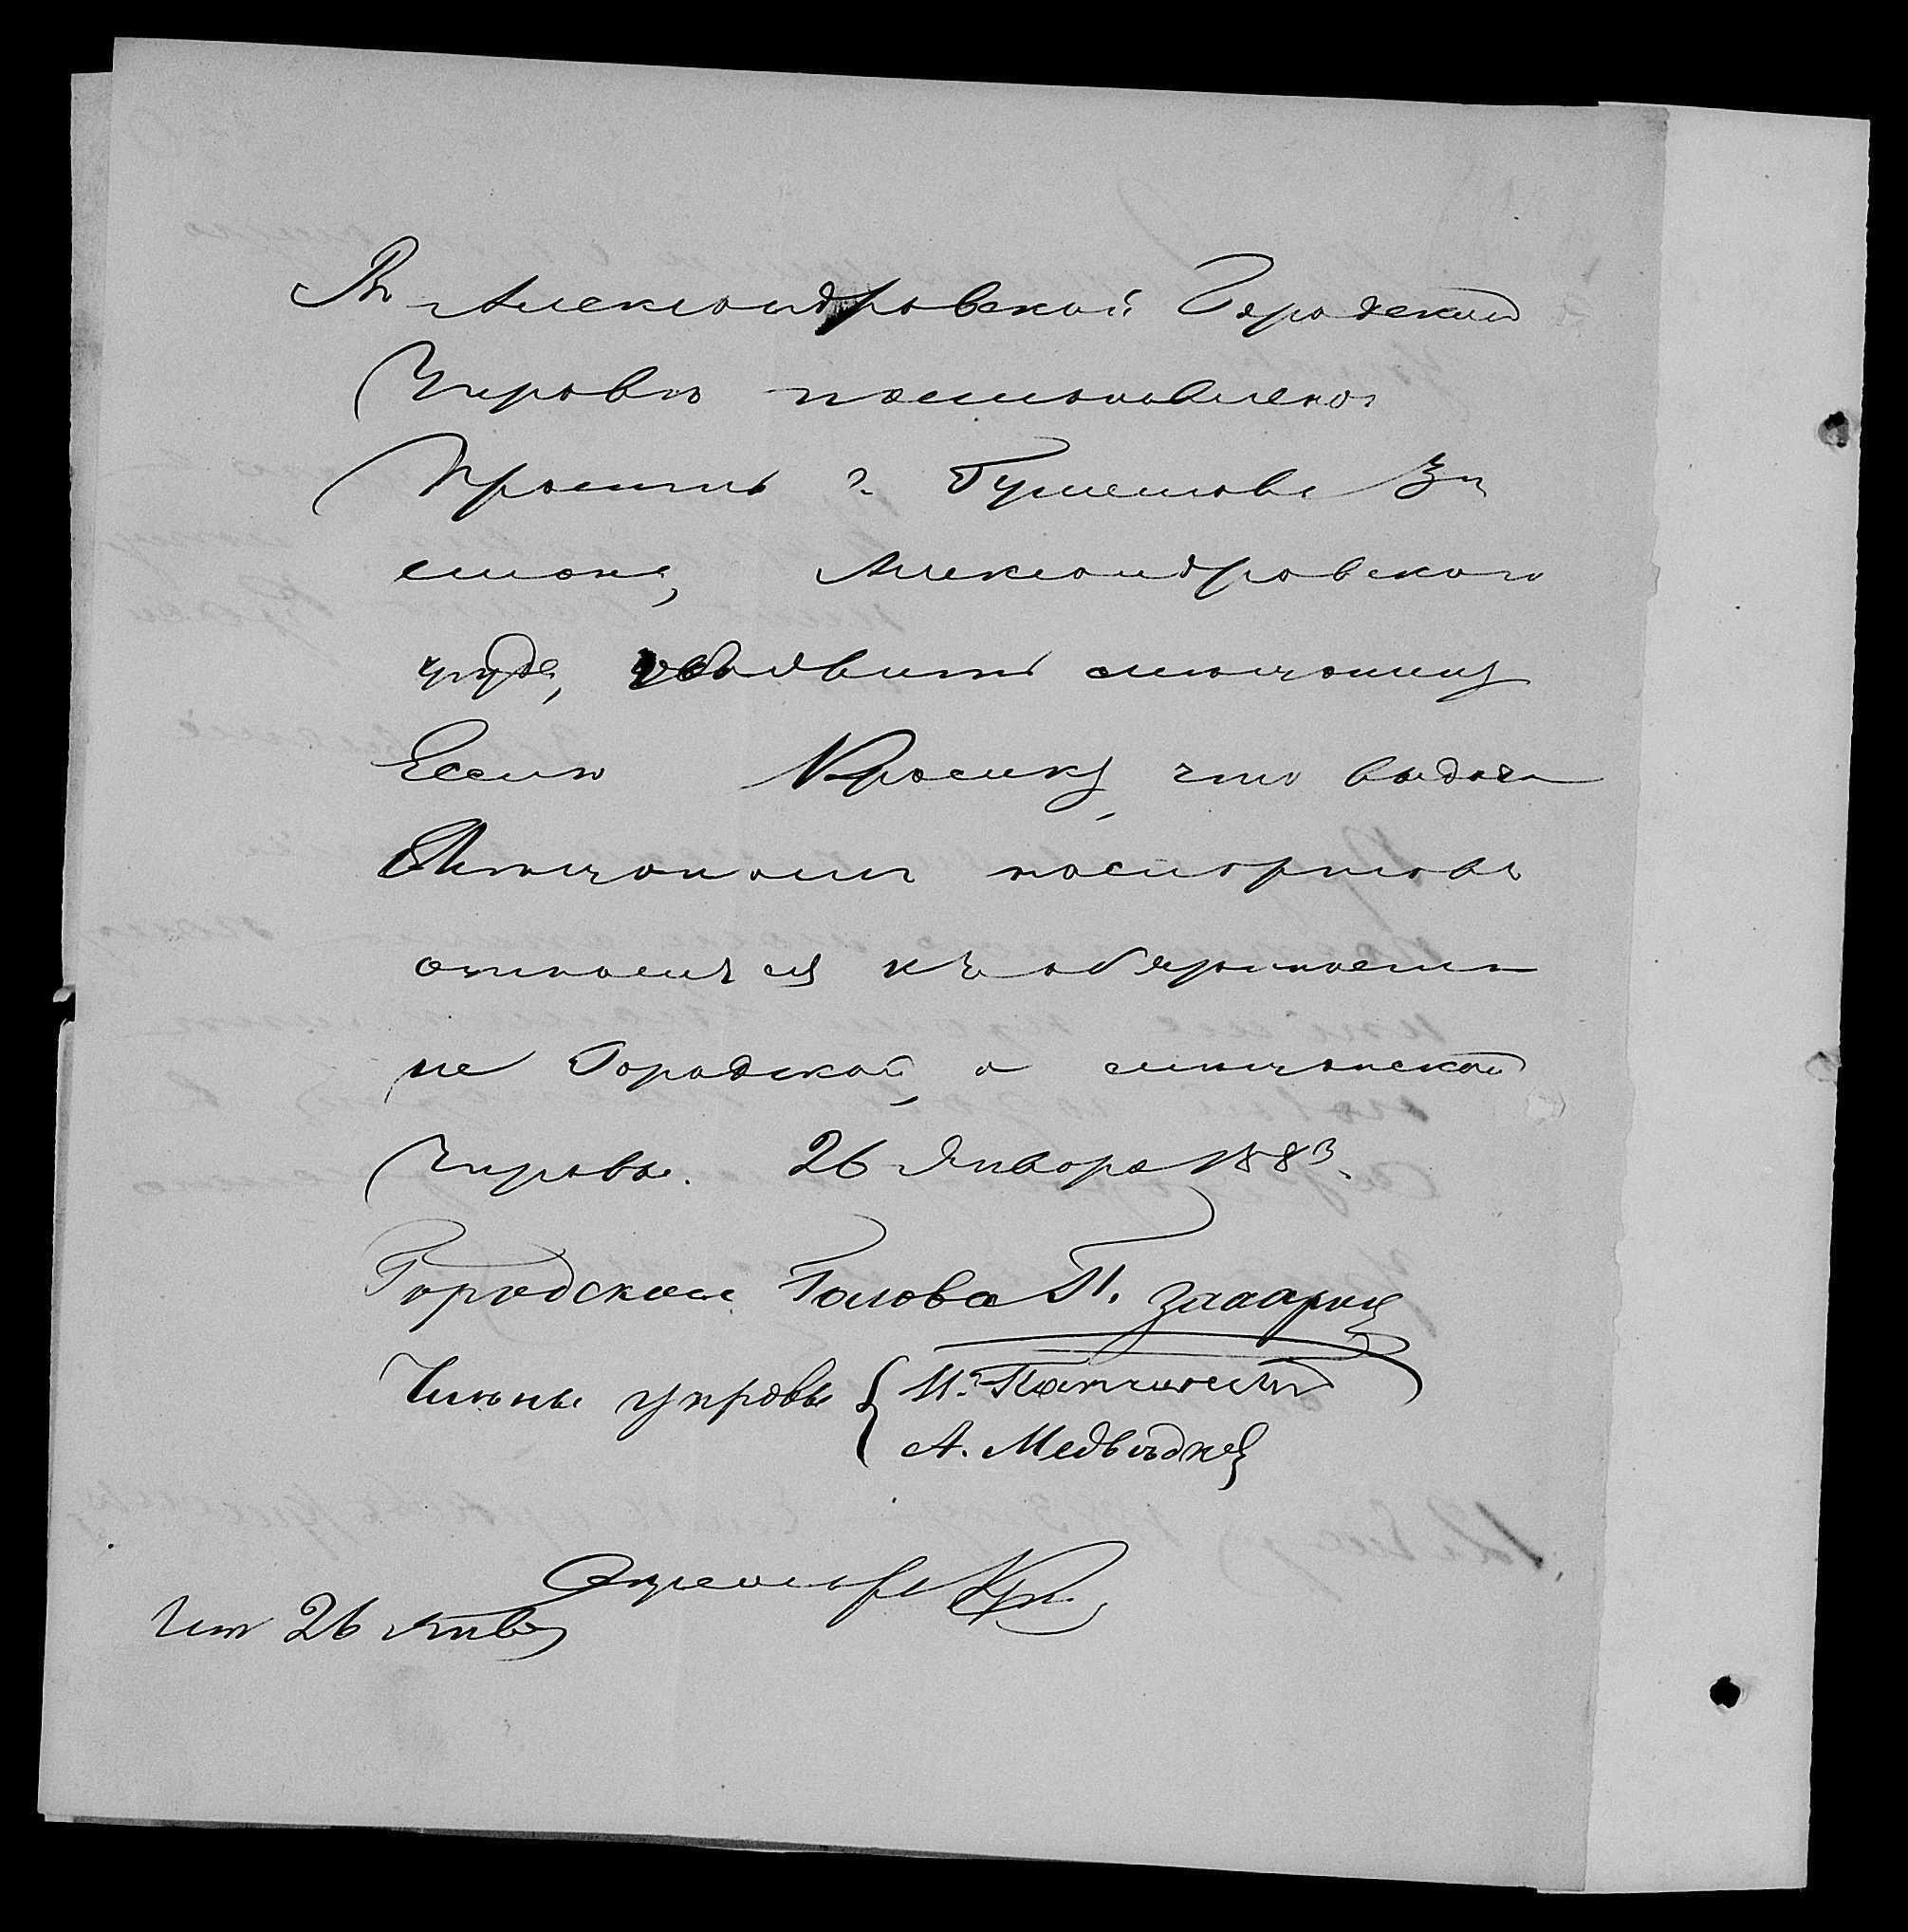 Въ Александровской Городской
Управѣ постановлено:
Просить г. Пристава 3го
стана, Александровскаго
уѣзда, объявить мѣщанину
Еселю Красику, что выдача
мѣщанамъ паспортовъ
относится къ обязанности
не Городской, а мѣщанской
Управы. 26 Января 1883.
Городской Голова П.
Члены управы {
А. Медвѣдка

Исп 26 Янв